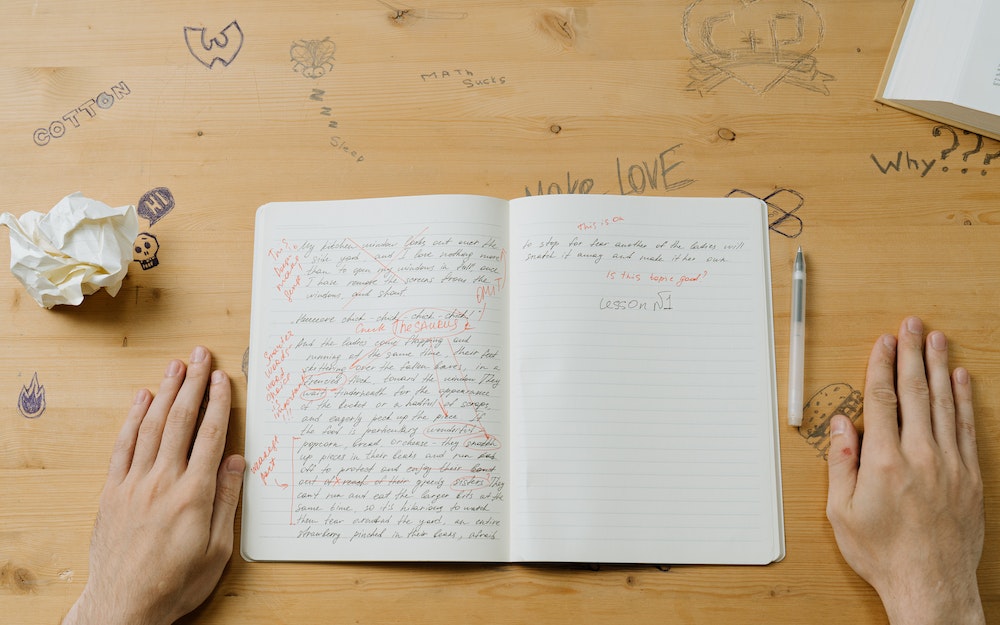 W
COTTON
zzzz Sleep
MATH
Sucks
CP
Make LOVE
Why???
HI
This
being
My kitchen window looks out over the
side yard, and I love nothing more
than to open my windows in fall, once
I have remove the screens from the
windows, and shout.
OMIT
Heeeeere chick-chick-chick-chick!
Check THESAURUS
And the ladies come flapping and
running at the same time, their feet
over the fallen leaves, in a
frenzied toward the window. They
wait underneath for the appearance
of the bucket or a handful of scraps,
and eagerly peck up the piece. If
the food is particularly wonderful -
popcorn, bread, or cheese - they snatch
up pieces in their beaks and run
off to protect and enjoy their
out of reach of their greedy sisters. They
can't run and eat the larger bits at the
same time, so it's hilarious to watch
them tear around the yard, an entire
strawberry pinched in their beaks, afraid
Smarter
words
word
choice
important
weakest
part
This is a
to stop for fear another of the ladies will
snatch it away and make it her own.
Is this topic good?
Lesson №1